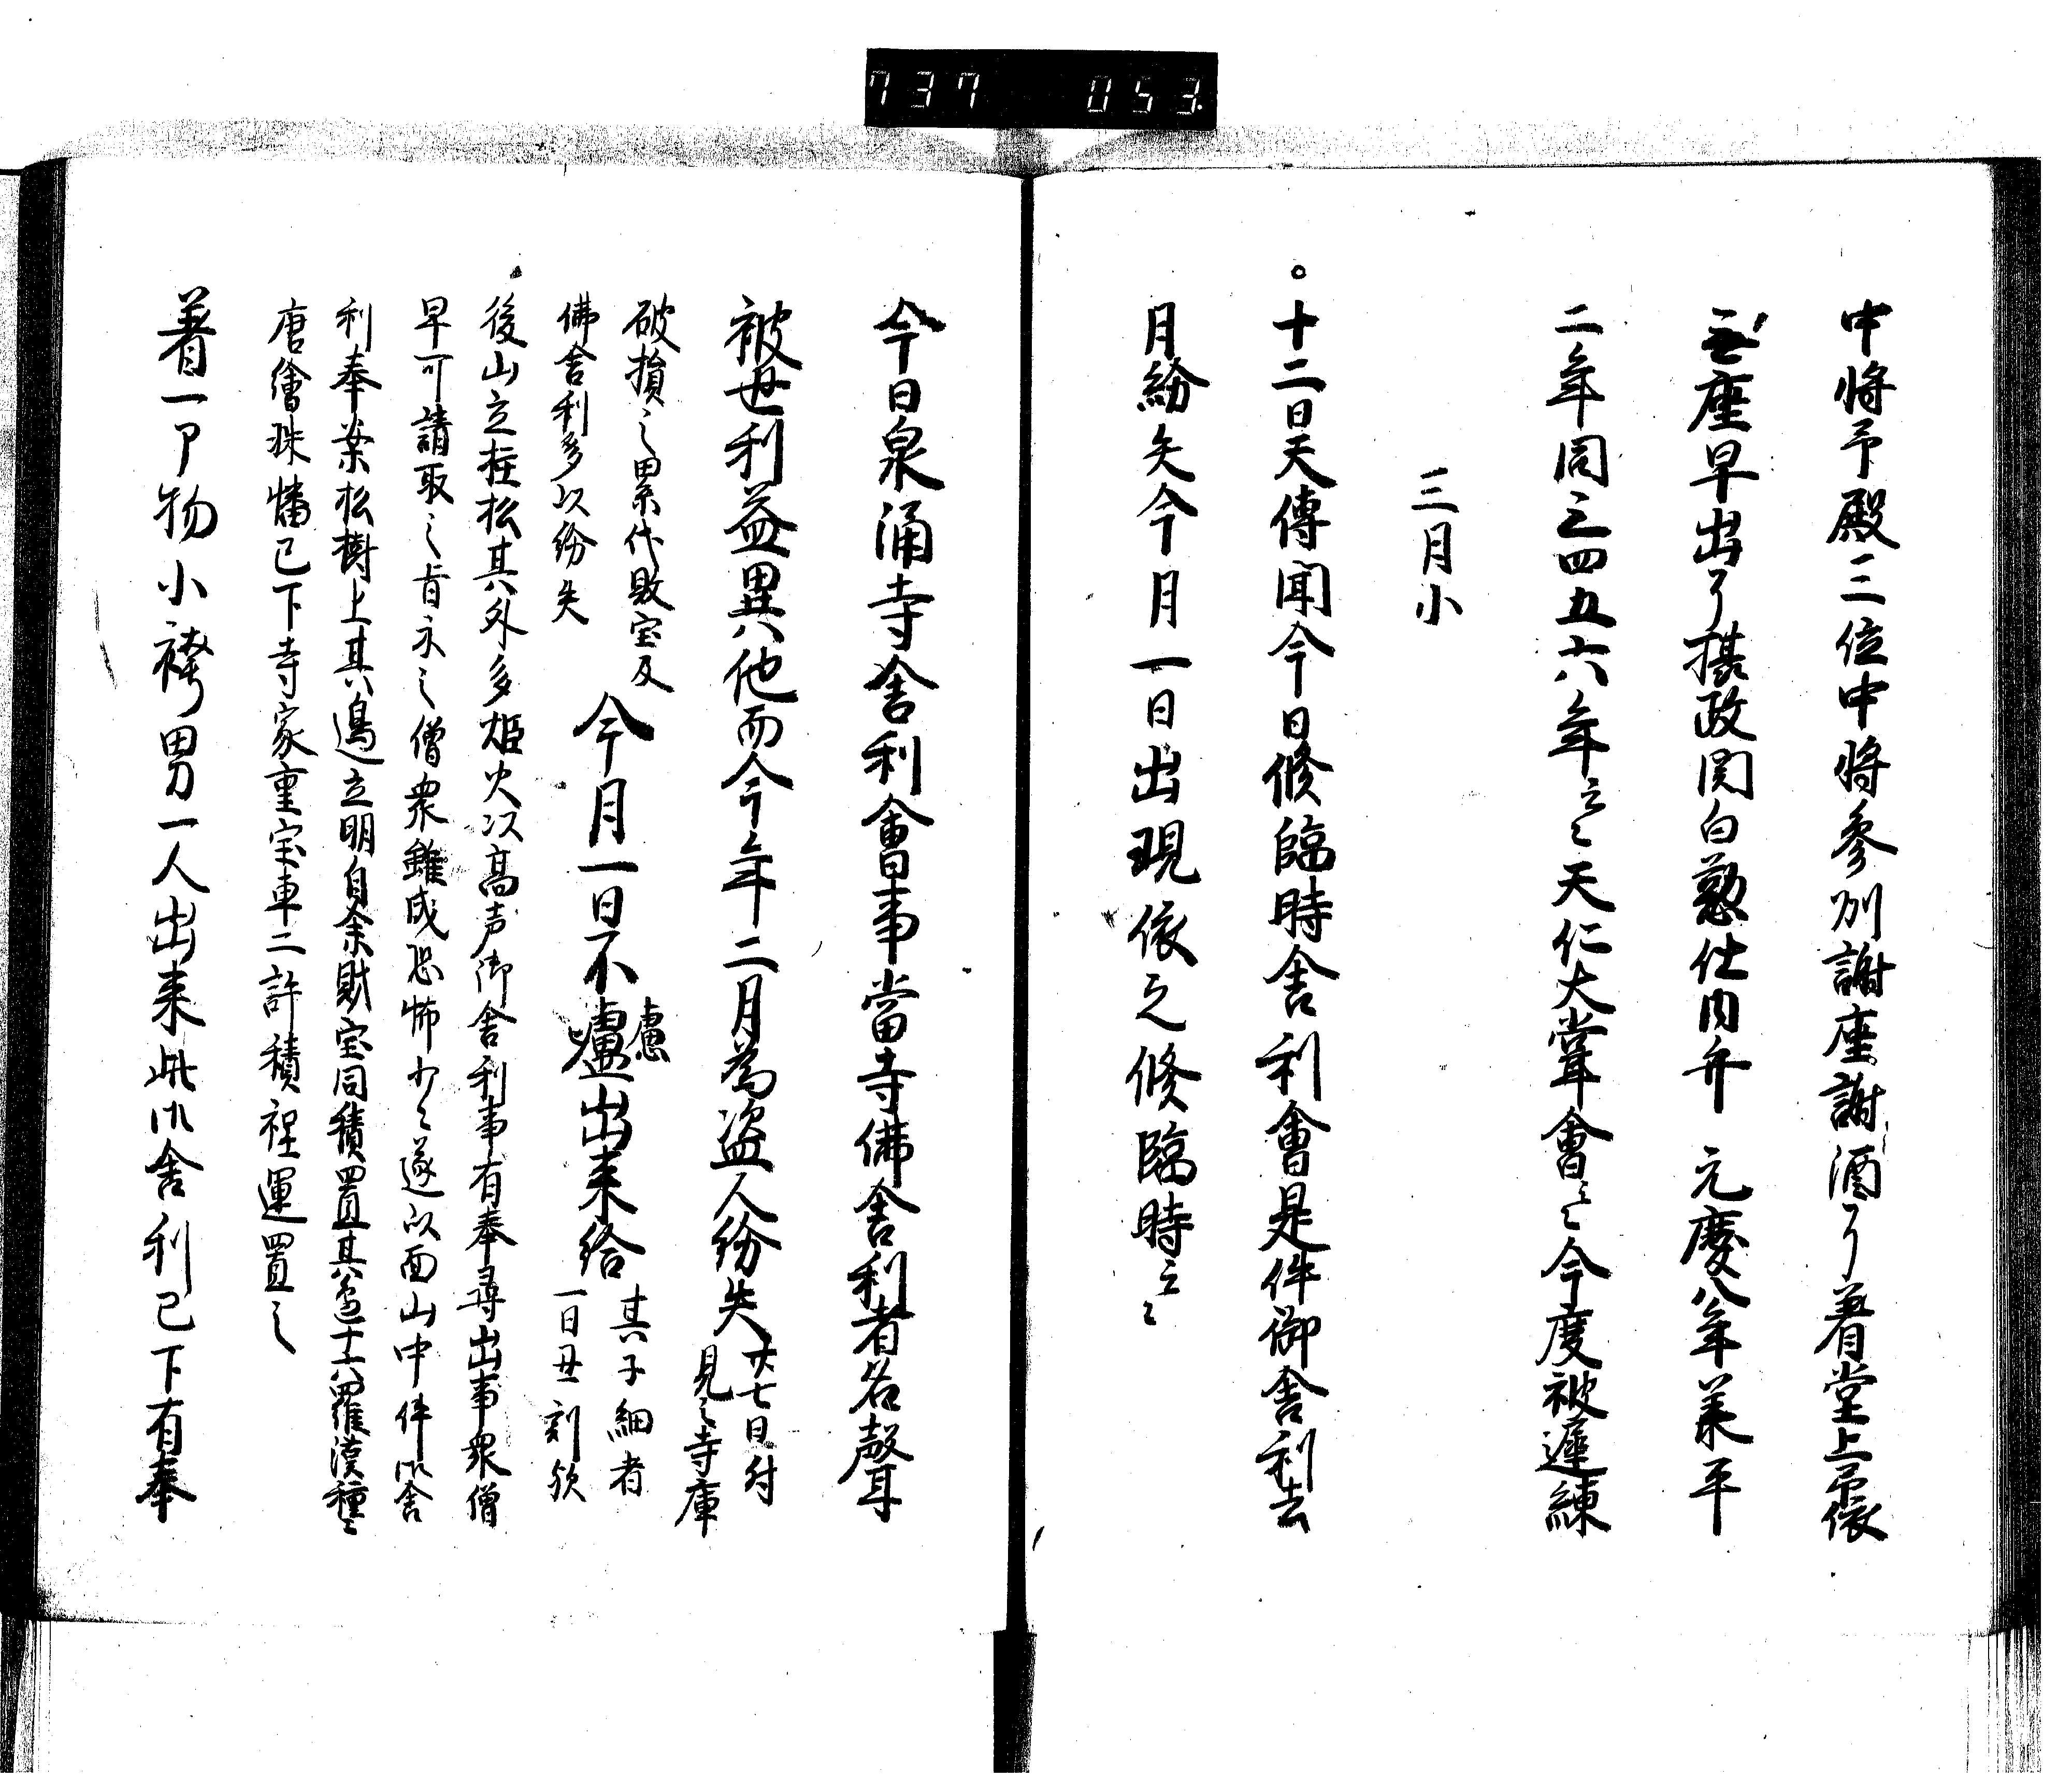 737 053
中将予殿三位中将参列謝座謝酒了着堂上予依
無座早出了摂政関白懃仕内弁 元慶八年業平
二年同三四五六年云々天仁大嘗會云々今度被遅練
三月小
。十二日天傳聞今日修臨時舎利會是件御舎利去
月紛失今月一日出現依之修臨時云々
今日泉涌寺舎利會事當寺佛舎利者名聲
被世利益異他而今年二月為盗人紛失廿七日付
見之寺庫
破損之累代敗宝及
佛舎利多以紛失
今月一日不慮出来給其子細者
慮
一日丑刻欤
後山立柱松其外多炬火以高声御舎利事有奉尋出事衆僧
早可請取之旨示之僧衆雖成恐怖少々遂以面山中件御舎
利奉案松樹上其邊立明自余財宝同積置其邊十六羅漢種々
唐繪珠幡已下寺家重宝車二許積程運置之
着一了物小袴男一人出来此御舎利已下有奉